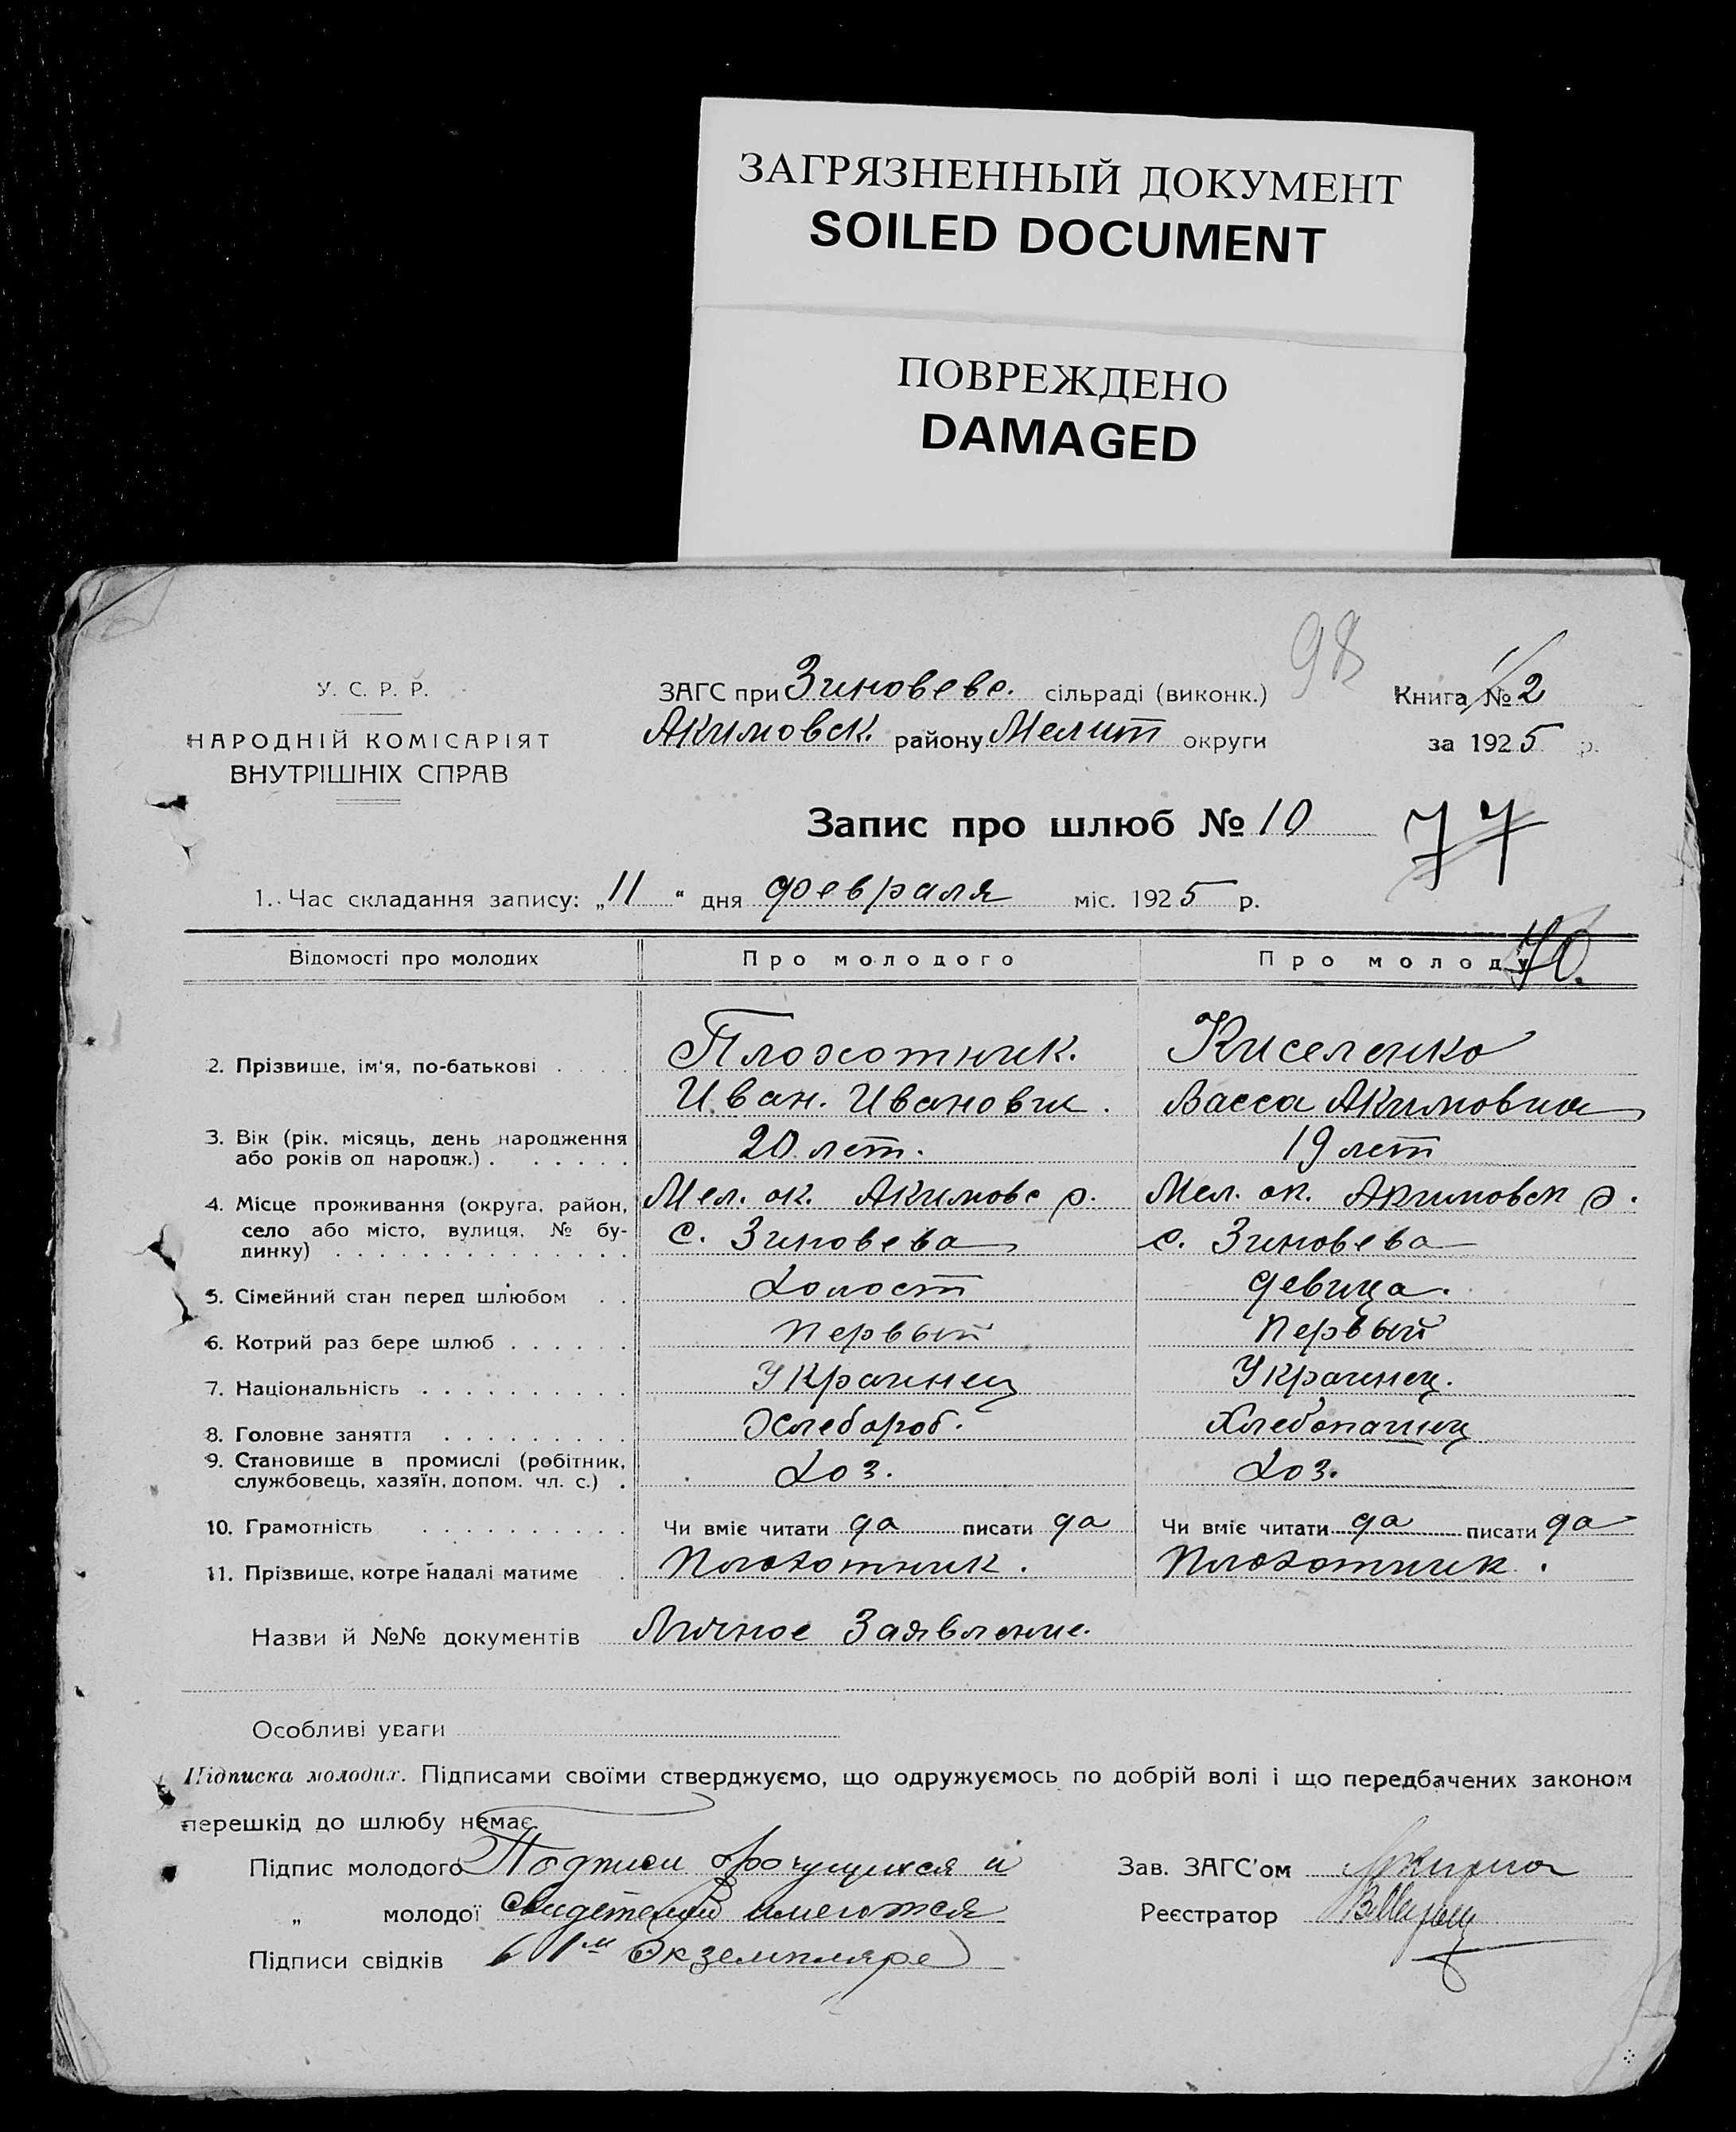 ЗАГРЯЗНЕННЫЙ ДОКУМЕНТ
SOILED DOCUMENT
ПОВРЕЖДЕНО
DAMAGED
98
У. С. Р. Р.
НАРОДНІЙ КОМІСАРІЯТ
ВНУТРІШНІХ СПРАВ
ЗАГС при Зиновевс. сільраді (виконк.)
Акимовск. району Мелит округи
Книга № 2
за 1925 р.
Запис про шлюб № 10
77
1. Час складання запису: „11“ дня февраля міс. 1925 р.
70.
Відомості про молодих Про молодого Про молоду
2. Прізвище, ім'я, по-батькові . . . . Плохотник. Киселенко
Иван. Ивановик. Васса Акимовна
3. Вік (рік, місяць, день народження
або років од народж.) . . . . . . 20 лет. 19 лет
4. Місце проживання (округа, район, Мел. ок. Акимовс р. Мел. ок. Акимовск р.
село або місто, вулиця, № бу-
динку) . . . . . . . . . . . . . . с. Зиновева с. Зиновева
5. Сімейний стан перед шлюбом . . Холост девица.
6. Котрий раз бере шлюб . . . . . . первый первый
7. Національність . . . . . . . . . . Украинец Украинец.
8. Головне заняття . . . . . . . . . Хлебороб. Хлебопашец
9. Становище в промислі (робітник,
службовець, хазяїн, допом. чл. с.) . Хоз. Хоз.
10. Грамотність . . . . . . . . . . Чи вміє читати да писати да Чи вміє читати да писати да
11. Прізвище, котре надалі матиме . Плохотник. Плохотник.
Назви й №№ документів Личное Заявление.
Особливі уваги
Підписка молодих. Підписами своїми стверджуємо, що одружуємось по добрій волі і що передбачених законом
перешкід до шлюбу немає.
Підпис молодого Подписи брачущихся и
„ молодої свидетелей имеются
Підписи свідків в 1м Экземпляре
Зав. ЗАГС'ом
Реєстратор